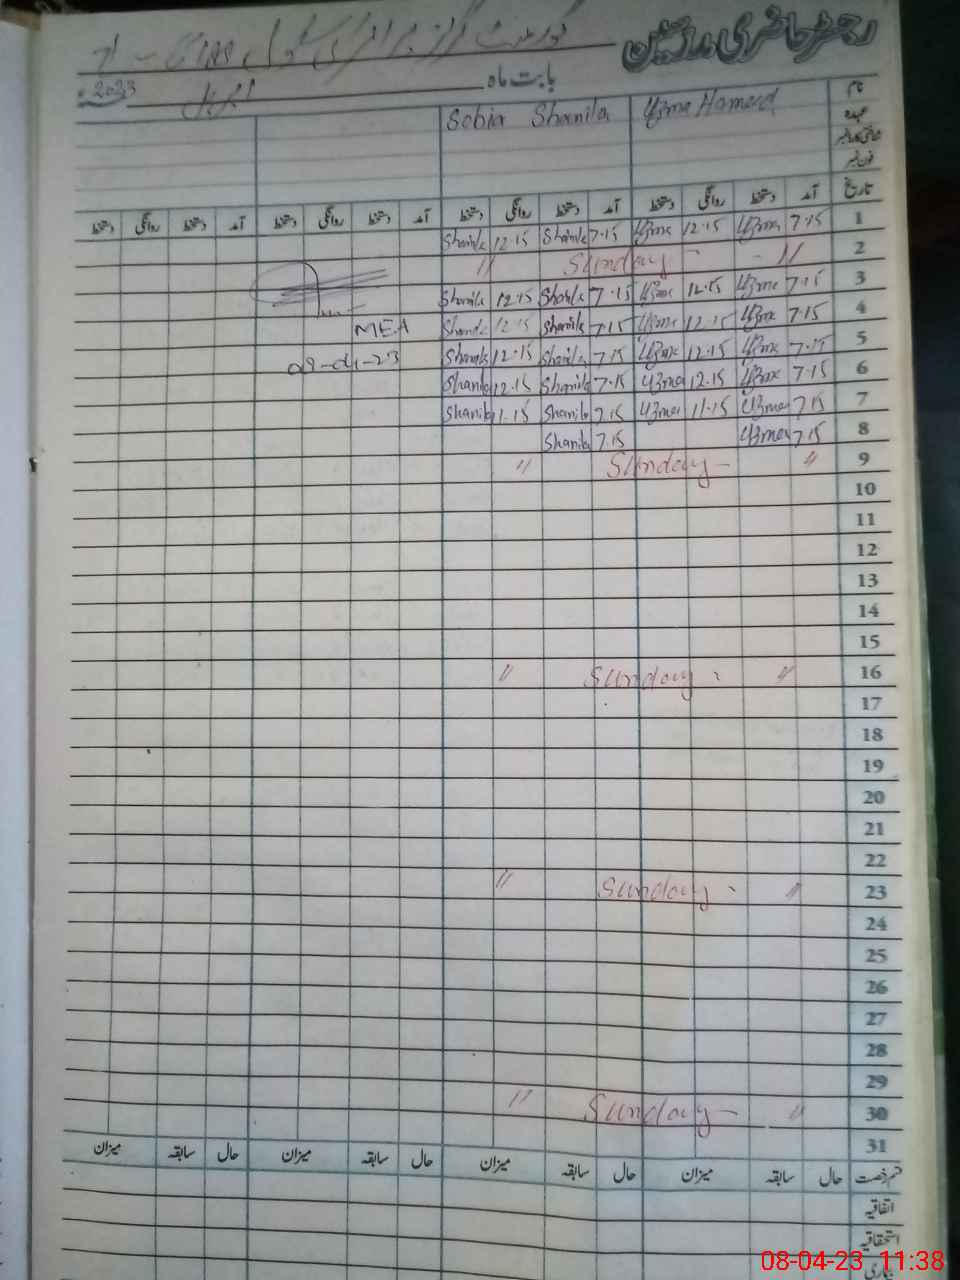 رجسٹر حاضری مدرسین گورنمنٹ گرلز پرائمری سکول
بابت ماہ اپریل 2023ء
نام Uzma Hameed Sobia Shanila
عہدہ
شناختی کارڈ نمبر
فون نمبر
تاریخ آمد دستخط روانگی دستخط آمد دستخط روانگی دستخط آمد دستخط روانگی دستخط آمد دستخط روانگی دستخط
1 7.15 Uzma 12.15 Uzma 7.15 Shanila 12.15 Shanila
2 " Sunday "
3 7.15 Uzma 12.15 Uzma 7.15 Shanila 12.15 Shanila
4 7.15 Uzma 12.15 Uzma 7.15 Shanila 12.15 Shanila MEA
5 7.15 Uzma 12.15 Uzma 7.15 Shanila 12.15 Shanila
6 7.15 Uzma 12.15 Uzma 7.15 Shanila 12.15 Shanila
7 7.15 Uzma 11.15 Uzma 7.15 Shanila 11.15 Shanila
8 7.15 Uzma 7.15 Shanila
9 " Sunday "
10
11
12
13
14
15
16 " Sunday "
17
18
19
20
21
22
23 " Sunday "
24
25
26
27
28
29
30 " Sunday "
31
قسم رخصت حال سابقہ میزان حال سابقہ میزان حال سابقہ میزان حال سابقہ میزان
اتفاقیہ
استحقاقیہ
بیماری
08-04-23 11:38